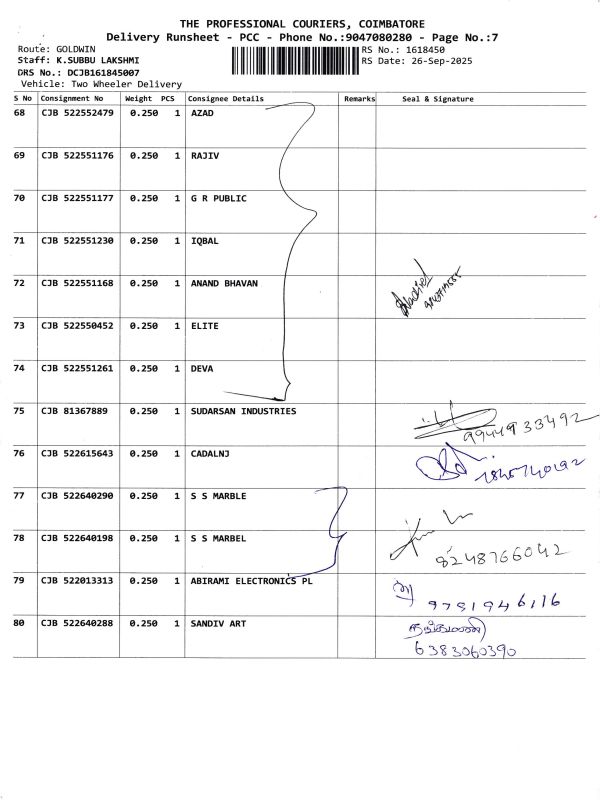 THE PROFESSIONAL COURIERS, COIMBATORE
Delivery Runsheet - PCC - Phone No.:9047080280 - Page No.:7
Route: GOLDWIN
RS No.: 1618450
Staff: K.SUBBU LAKSHMI
RS Date: 26-Sep-2025
DRS No.: DCJB161845007
Vehicle: Two Wheeler Delivery
S No Consignment No Weight PCS Consignee Details Remarks Seal & Signature
68 CJB 522552479 0.250 1 AZAD
69 CJB 522551176 0.250 1 RAJIV
70 CJB 522551177 0.250 1 G R PUBLIC
71 CJB 522551230 0.250 1 IQBAL
72 CJB 522551168 0.250 1 ANAND BHAVAN
73 CJB 522550452 0.250 1 ELITE
74 CJB 522551261 0.250 1 DEVA
75 CJB 81367889 0.250 1 SUDARSAN INDUSTRIES
9944933492
76 CJB 522615643 0.250 1 CADALNJ
77 CJB 522640290 0.250 1 S S MARBLE
78 CJB 522640198 0.250 1 S S MARBEL
8248766042
79 CJB 522013313 0.250 1 ABIRAMI ELECTRONICS PL
9791946116
80 CJB 522640288 0.250 1 SANDIV ART
6383060390